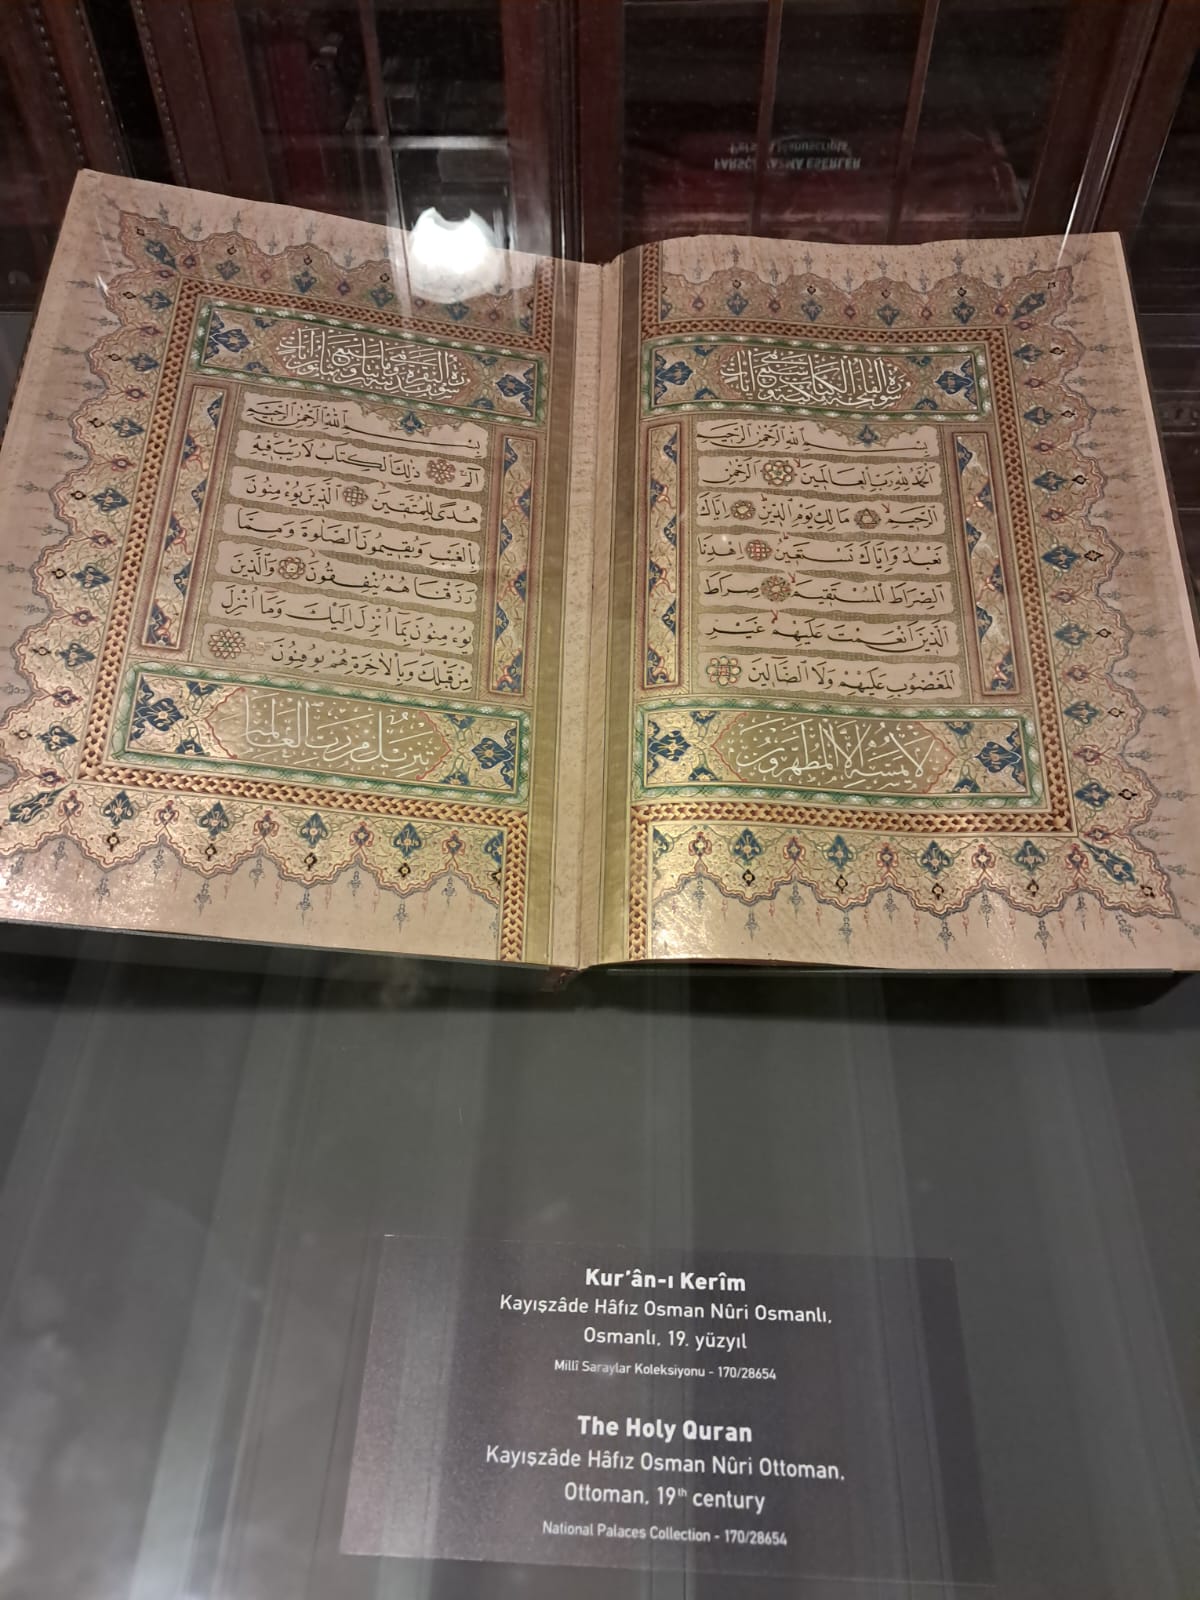 FARSÇA YAZMA ESERLER
Persian Manuscripts
سورة الفاتحة الكتاب مكية وهي سبع آيات
بِسْمِ اللهِ الرَّحْمٰنِ الرَّحِيمِ
اَلْحَمْدُ لِلّٰهِ رَبِّ الْعَالَمِينَ الرَّحْمٰنِ
الرَّحِيمِ مَالِكِ يَوْمِ الدِّينِ اِيَّاكَ
نَعْبُدُ وَاِيَّاكَ نَسْتَعِينُ اِهْدِنَا
الصِّرَاطَ الْمُسْتَقِيمَ صِرَاطَ
الَّذِينَ اَنْعَمْتَ عَلَيْهِمْ غَيْرِ
الْمَغْضُوبِ عَلَيْهِمْ وَلَا الضَّالِّينَ
لا يمسه الا المطهرون
سورة البقرة
بِسْمِ اللهِ الرَّحْمٰنِ الرَّحِيمِ
الٓمٓ ذٰلِكَ الْكِتَابُ لَا رَيْبَ فِيهِ
هُدًى لِلْمُتَّقِينَ اَلَّذِينَ يُؤْمِنُونَ
بِالْغَيْبِ وَيُقِيمُونَ الصَّلٰوةَ وَمِمَّا
رَزَقْنَاهُمْ يُنْفِقُونَ وَالَّذِينَ
يُؤْمِنُونَ بِمَٓا اُنْزِلَ اِلَيْكَ وَمَٓا اُنْزِلَ
مِنْ قَبْلِكَ وَبِالْاٰخِرَةِ هُمْ يُوقِنُونَ
تنزيل من رب العالمين
Kur'ân-ı Kerîm
Kayışzâde Hâfız Osman Nûri Osmanlı,
Osmanlı, 19. yüzyıl
Millî Saraylar Koleksiyonu - 170/28654
The Holy Quran
Kayışzâde Hâfız Osman Nûri Ottoman,
Ottoman, 19th century
National Palaces Collection - 170/28654